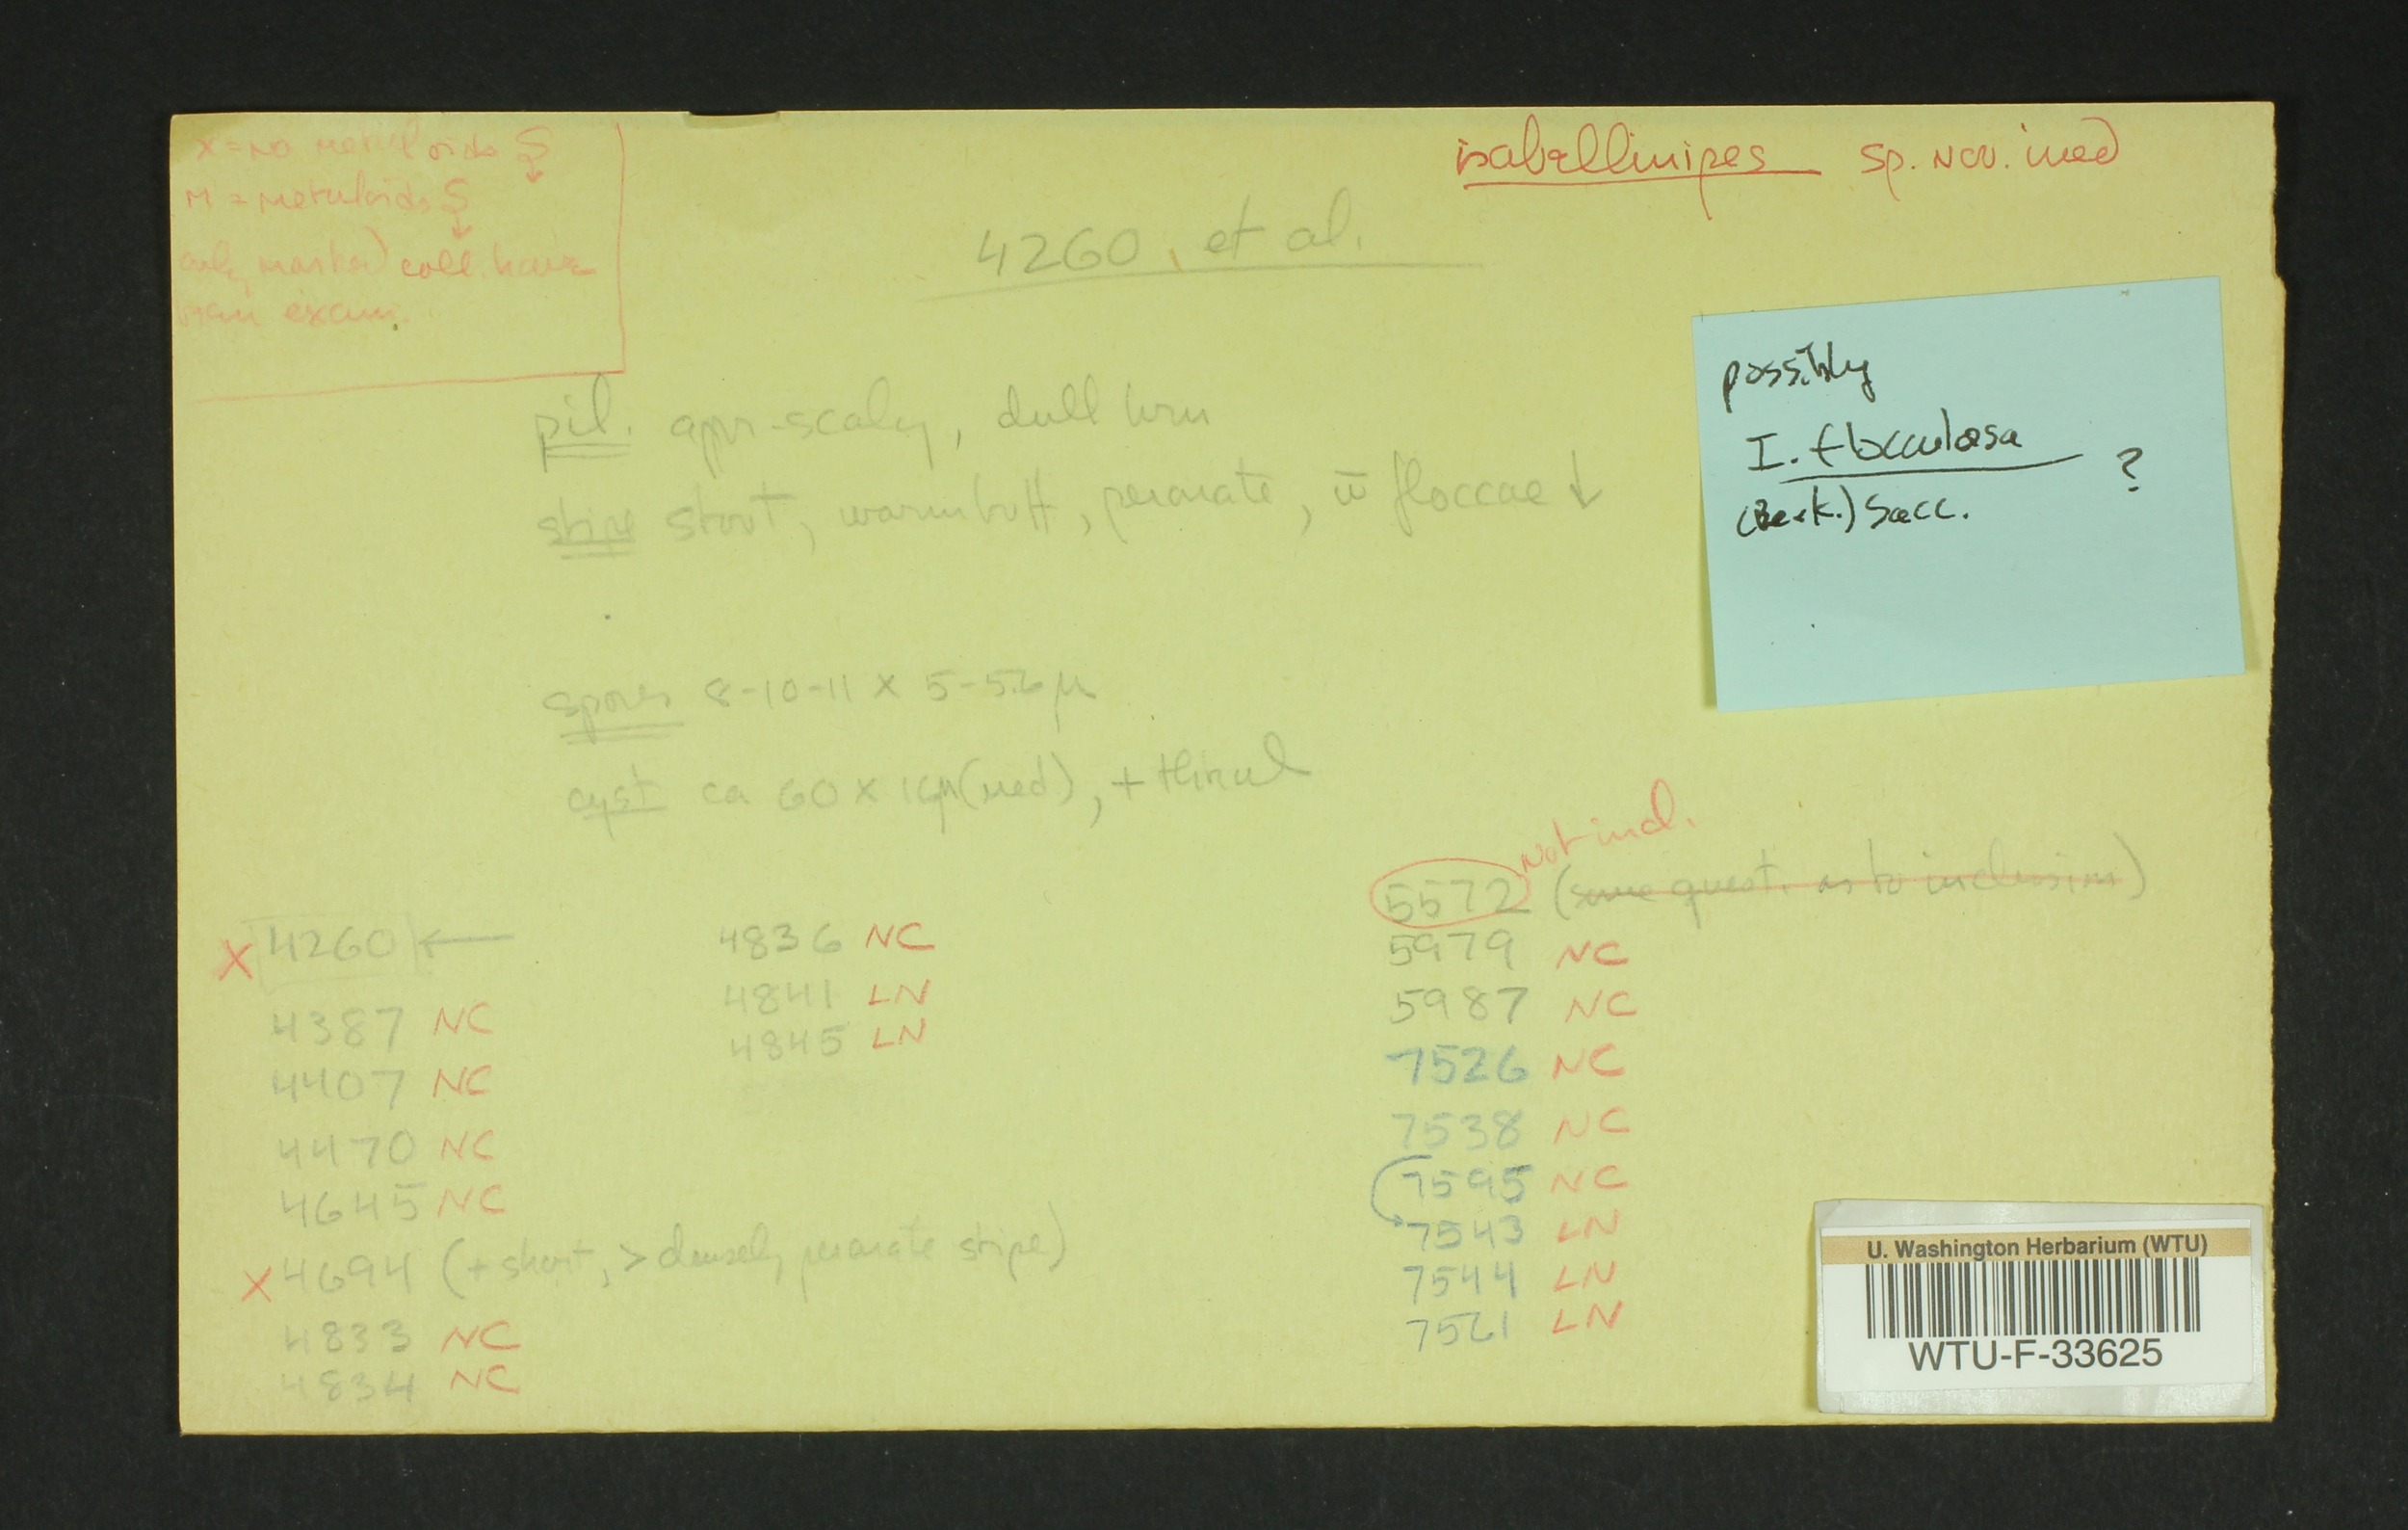 x = no metuloids S↓
M = metuloids S↓
only marked coll. have
been exam.
isabellinipes sp. nov. ined
4260, et al.
possibly
I. flocculosa ?
(Berk.) Sacc.
pil. appr-scaly, dull brn
stipe stout, warm buff, peronate, w̄ floccae ↓
spores 8-10-11 x 5-5.6 µ
cyst ca 60 x 16µ (med), +
Not incl.
5572 (some quest. as to inclusion)
X 4260 ←
4387 NC
4407 NC
4470 NC
4645 NC
X 4694 (+ short, > densely peronate stipe)
4833 NC
4834 NC
4836 NC
4841 LN
4845 LN
5979 NC
5987 NC
7526 NC
7538 NC
7595 NC
7543 LN
7544 LN
7521 LN
U. Washington Herbarium (WTU)
WTU-F-33625